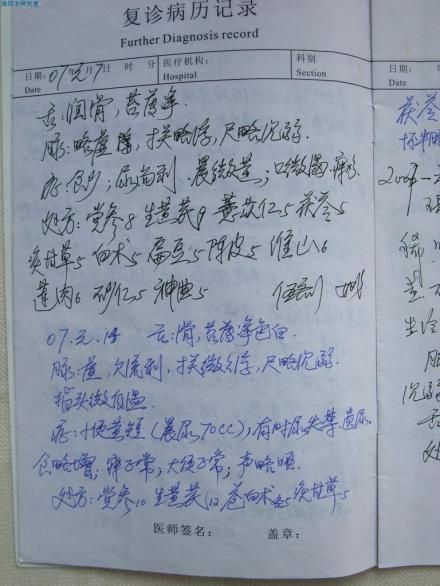 复诊病历记录
Further Diagnosis record
日期: 07年元月7日 时 分 医疗机构: 科别
Date Hospital Section
舌:润滑,苔薄净.
脉:略虚, 寸关略浮,尺略沉弱.
症:食少;尿尚利.晨微黄;口微渴.
处方:党参8 生黄芪9 薏苡仁5 茯苓5
炙甘草5 白术5 扁豆5 陈皮5 淮山6
莲肉6 砂仁5 神曲5 伍剂
07.元.14 舌:滑,苔薄净色白.
脉:虚,欠流利,寸关微浮,尺略沉弱.
指头微自温.
症:小便黄短(晨尿70cc),有时尿失禁.遗尿.
食略增;寐正常;大便正常;声略哑.
处方:党参10 生黄芪12 苍白术各5 炙甘草5
医师签名: 盖章:
日期:
Date
茯苓
生
沉弱
舌
处